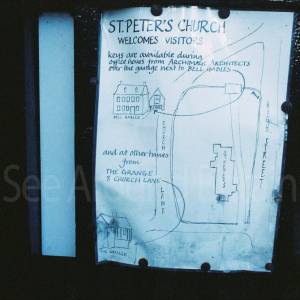 ST. PETER'S CHURCH
WELCOMES VISITORS
keys are available during
office hours from ARCHIMAGE ARCHITECTS
over the garage next to BELL GABLES
BELL GABLES
CHURCH
LANE
HIGH STREET
and at other times
from
THE GRANGE
8 CHURCH LANE
THE GRANGE